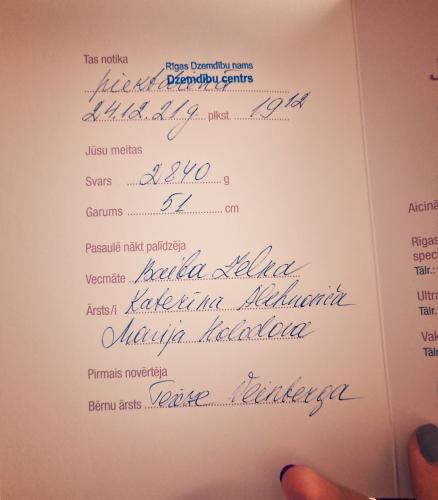 Tas notika
Rīgas Dzemdību nams
Dzemdību centrs
piektdienā
24.12.21g. plkst. 19¹²
Jūsu meitas
Svars 2840 g
Garums 51 cm
Pasaulē nākt palīdzēja
Vecmāte Baiba Zelna
Ārsts/i Katerina Alehnoviča
Marija Holodova
Pirmais novērtēja
Bērnu ārsts Veinberga
Aicinā
Rīgas
speci
Tālr.:
Ultra
Tālr.
Vak
Tālr